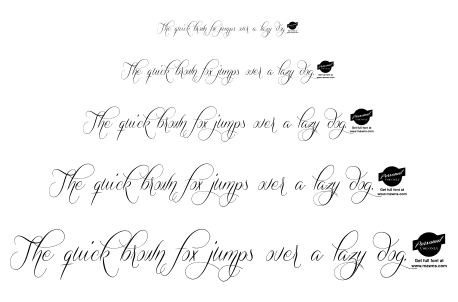 The quick brown fox jumps over a lazy dog.
The quick brown fox jumps over a lazy dog.
The quick brown fox jumps over a lazy dog.
Get full font at
The quick brown fox jumps over a lazy dog.
Personal
Get full font at
The quick brown fox jumps over a lazy dog.
Personal
USE ONLY
Get full font at